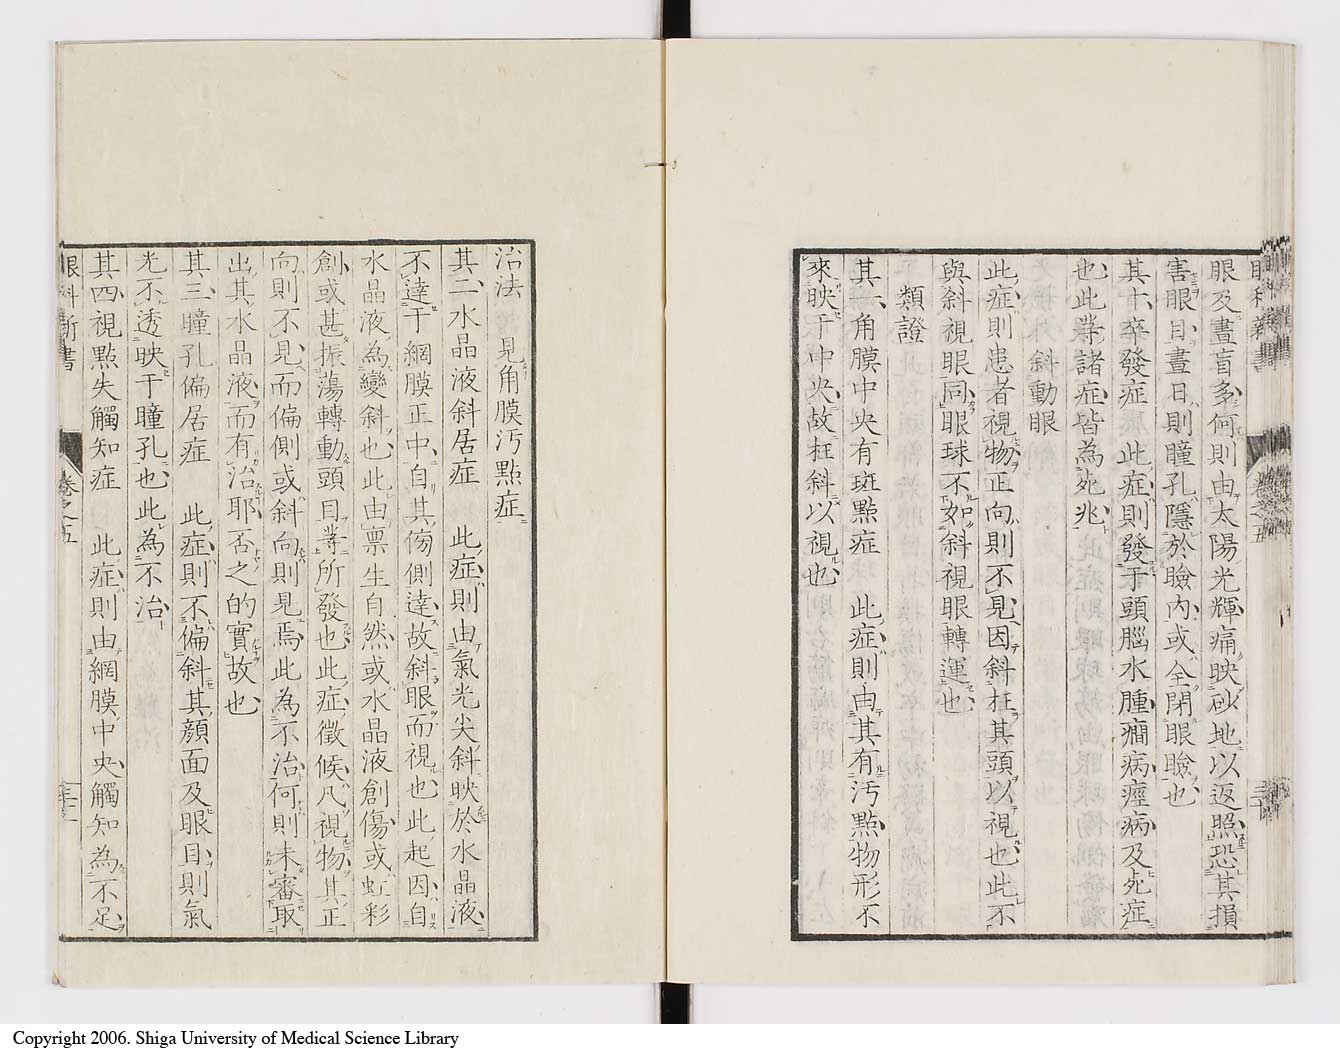 眼及晝盲多何則由太陽光輝痛映砂地以返照恐其損
害眼目晝日則瞳孔隱於瞼內或全閉眼瞼也
其十卒發症 此症則發于頭腦水腫癎病痙病及死症
也此等諸症皆為死兆
斜動眼
此症則患者視物正向則不見因斜枉其頭以視也此不
與斜視眼同眼球不如斜視眼轉運也
類證
其一角膜中央有斑點症 此症則由其有汚點物形不
來映于中央故枉斜以視也
治法 見角膜汚點症
其二水晶液斜居症 此症則由氣光尖斜映於水晶液
不達于網膜正中自其傍側達故斜眼而視也此起因自
水晶液為變斜也此由禀生自然或水晶液創傷或虹彩
創或甚振蕩轉動頭目等所發也此症徵候凡視物其正
向則不見而偏側或斜向則見焉此為不治何則未審取
出其水晶液而有治耶否之的實故也
其三瞳孔偏居症 此症則不偏斜其顏面及眼目則氣
光不透映于瞳孔也此為不治
其四視點失觸知症 此症則由網膜中央觸知為不足
眼科新書
卷之五
Copyright 2006. Shiga University of Medical Science Library